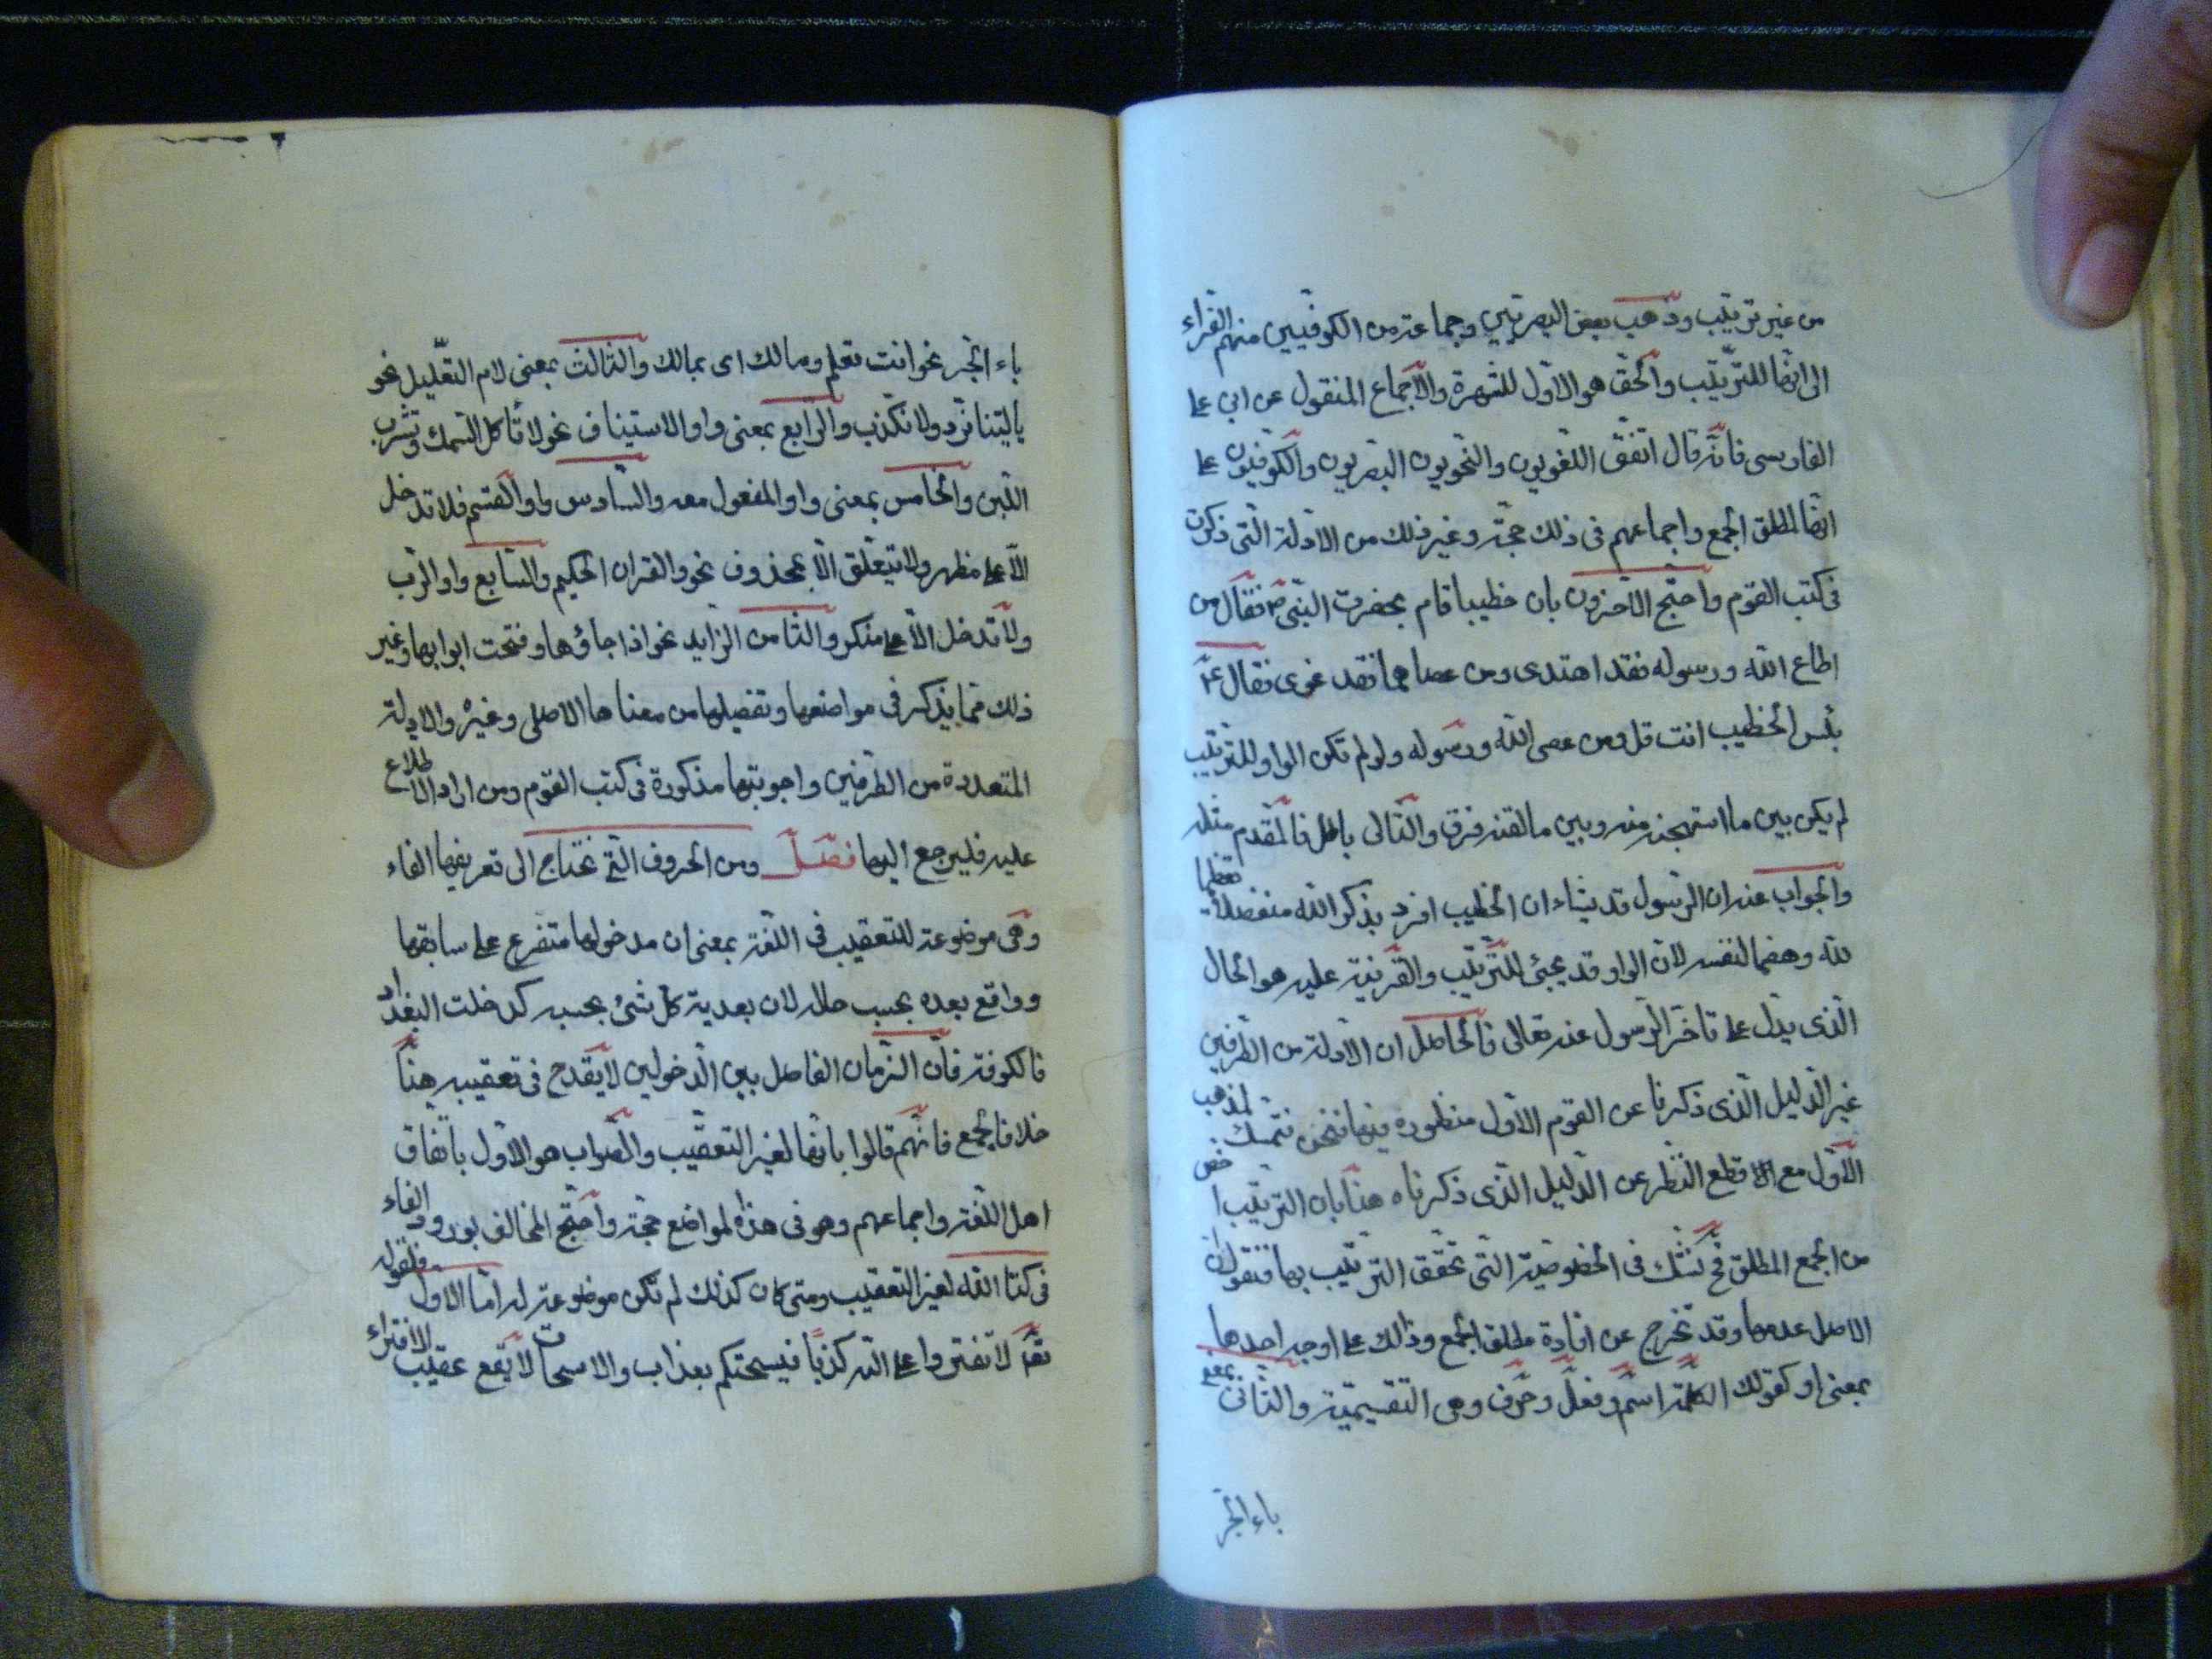 من غير ترتيب وذهب بعض البصريين وجماعة من الكوفيين منهم الفراء
الى انها للترتيب والحق هو الاول للشهرة والاجماع المنقول عن ابي على
الفارسى فانه قال اتفق اللغويون والنحويون البصريون والكوفيون على
انها لمطلق الجمع واجماعهم فى ذلك حجة وغير ذلك من الادلة التى ذكرت
فى كتب القوم واحتج الآخرون بان خطيبا قام بحضرت النبى ص فقال من
اطاع الله ورسوله فقد اهتدى ومن عصاهما فقد غوى فقال ع
بئس الخطيب انت قل ومن عصى الله ورسوله ولو لم تكن الواو للترتيب
لم يكن بين ما استهجنه منه وبين ما لقنه فرق والتالى باطل فالمقدم مثله
والجواب عنه ان الرسول قد يشاء ان الخطيب افرد بذكر الله منفصلا تعظيما
لله وهضما لنفسه لان الواو قد يجئ للترتيب والقرينة عليه هو الحال
الذى يدل على تاخر الرسول عنه تعالى فالحاصل ان الادلة من الطرفين
غير الدليل الذى ذكرنا عن القوم الاول منظورة فيها فنحن نتمسك لمذهب
الاول مع قطع النظر عن الدليل الذى ذكرناه هنا بان الترتيب اخص
من الجمع المطلق فح نشك فى الخصوصية التى تحقق الترتيب بها فنقول ان
الاصل عدمها وقد تخرج عن افادة مطلق الجمع وذالك على اوجه احدها
بمعنى او كقولك الكلمة اسم وفعل وحرف وهى التقسيمية والثانى بمعنى
باء الجر
باء الجر نحو انت تعلم ومالك اى بمالك والثالث بمعنى لام التعليل نحو
ياليتنا نرد ولا نكذب والرابع بمعنى واو الاستيناف نحو لا تاكل السمك وتشرب
اللبن والخامس بمعنى واو المفعول معه والسادس واو القسم فلا تدخل
الا على مظهر ولا يتعلق الا بمحذوف نحو والقران الحكيم والسابع واو الرب
ولا تدخل الا على منكر والثامن الزايد نحو اذا جاؤها وفتحت ابوابها وغير
ذلك مما يذكر فى مواضعها وتفصيلها من معناها الاصلى وغيره والادلة
المتعددة من الطرفين واجوبتها مذكورة فى كتب القوم ومن اراد الاطلاع
عليه فليرجع اليها فصل ومن الحروف التى نحتاج الى تعريفها الفاء
وهى موضوعة للتعقيب فى اللغة بمعنى ان مدخولها متفرع على سابقها
وواقع بعده بحسب حاله لان بعدية كل شئ بحسبه كدخلت البغداد
فالكوفة فان الزمان الفاصل بين الدخولين لا يقدح فى تعقيبه هنا
خلافا لجمع فانهم قالوا بانها لغير التعقيب والصواب هو الاول باتفاق
اهل اللغة واجماعهم وهو فى هذا المواضع حجة واحتج المخالف بورود الفاء
فى كتاب الله لغير التعقيب ومتى كان كذلك لم تكن موضوعة له اما الاول فلقوله
تعالى لا تفتروا على الله كذبا فيسحتكم بعذاب والاسحات لا يقع عقيب الافتراء